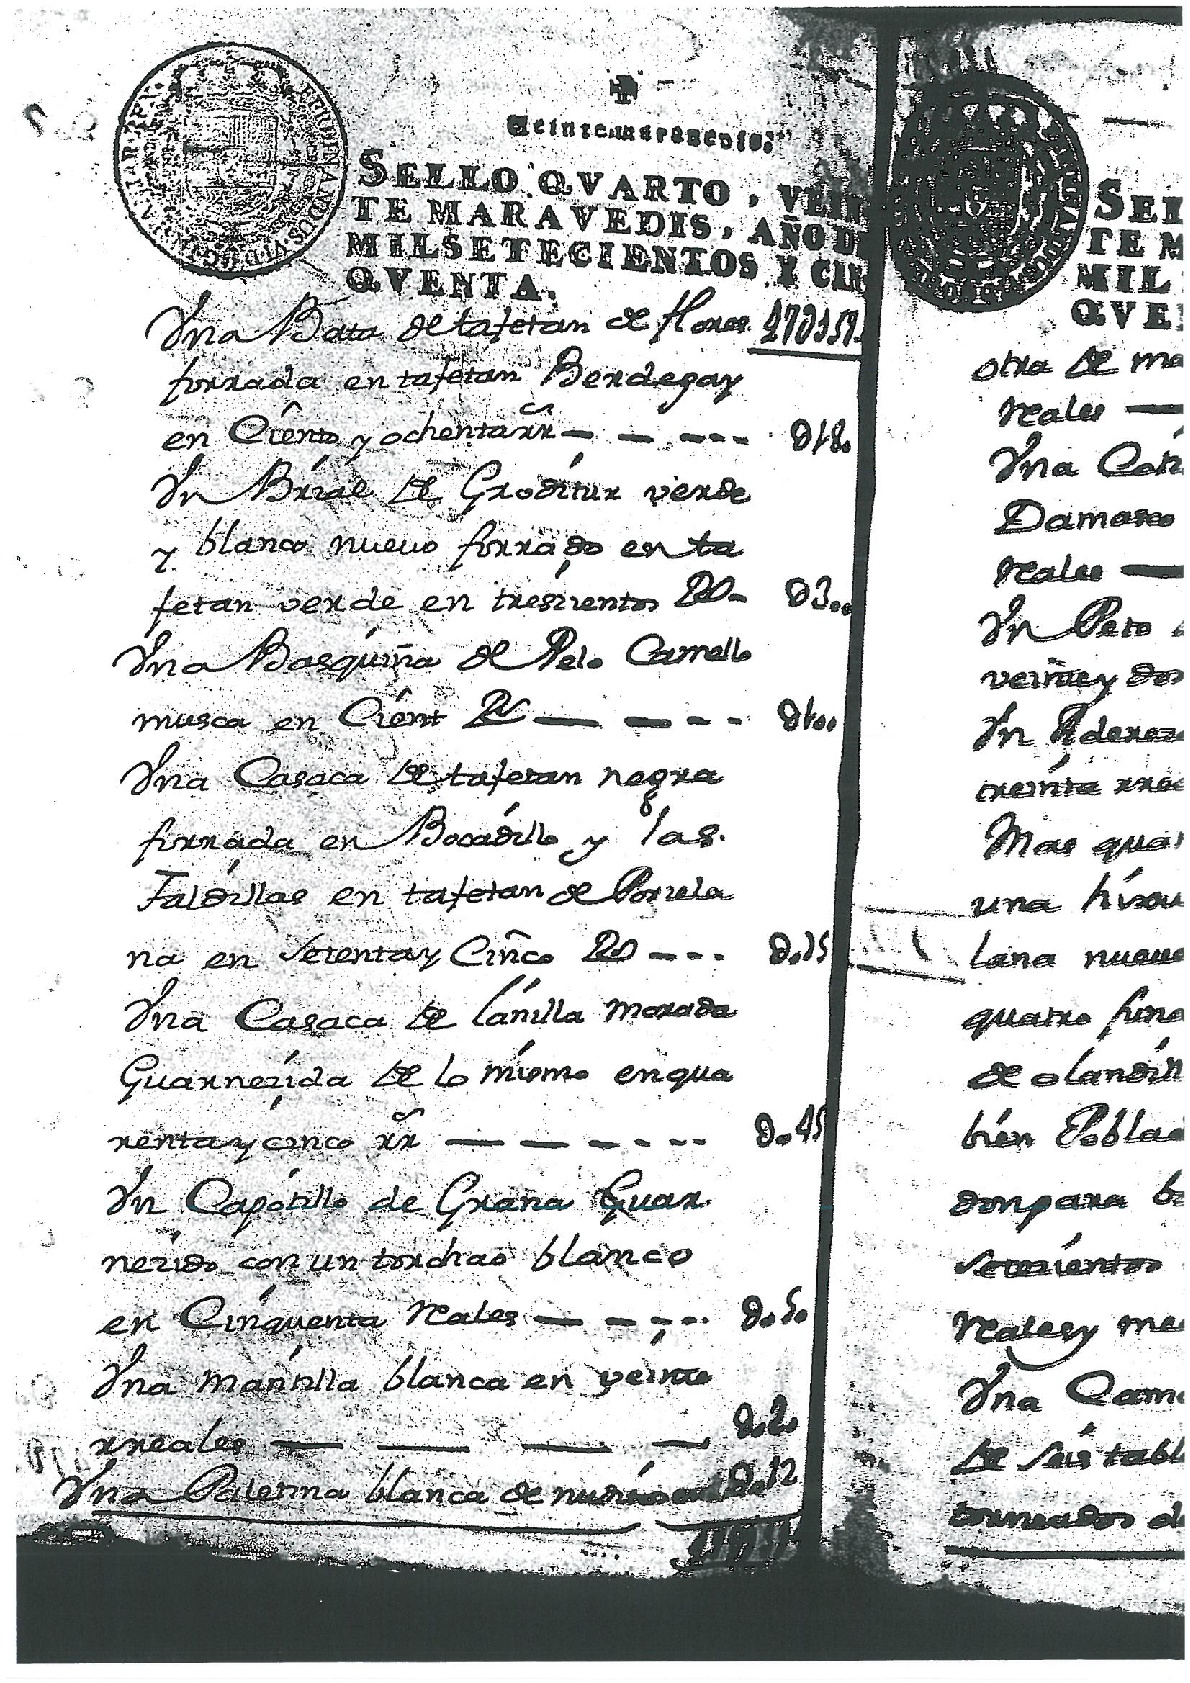 Veinte maravedis.
SELLO QVARTO, VEIN
TE MARAVEDIS, AÑO D
MILSETECIENTOS Y CIN
QVENTA.
Vna Bata de tafetan de flores
forrada en tafetan Berdegay
en Ciento y ochenta rrs — — --- 018.
Vn Brial de Grodítur verde
y blanco nuevo forrado en ta
fetan verde en tresientos Rs- 03..
Vna Basquiña de Pelo Camello
musca en Cient Rs — — --- 01..
Vna Casaca de tafetan negra
forrada en Bocadillo y las
Faldillas en tafetan de Porzela
na en setenta y Cinco Rs --- 0.75
Vna Casaca de lanilla morada
Guarnezida de lo mismo en qua
renta y cinco rrs — — --- 0.45
Vn Capotillo de Grana Guar
nezido con un torchao blanco
en Cinquenta Reales — — --- 0.50
Vna Mantilla blanca en veinte
rreales — — — — 0.20
Vna Palatina blanca de 0.12
SEL
TE M
MIL
QVE
otra de ma
Reales —
Vna
Damasco
Reales —
Vn Peto
veinte y dos
Vn Aderez
treinta rrea
Mas qua
una
lana nueu
quatro
de olandill
bien Poblad
don para b
setezientos
Reales y me
Vna Cam
de seis tabl
torneados d